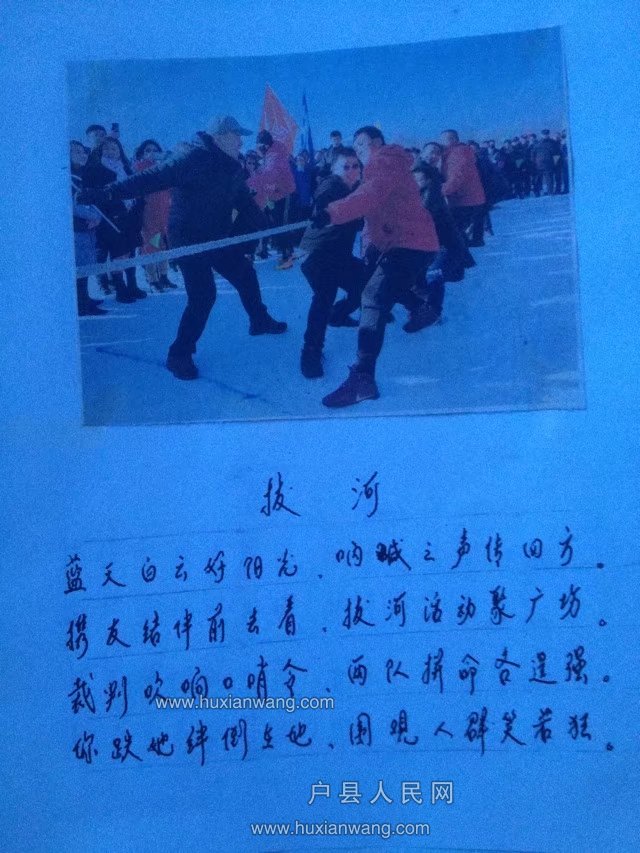 拔 河
蓝天白云好阳光、呐喊之声传四方。
携友结伴前去看、拔河活动聚广场。
裁判吹响口哨令、两队拼命各逞强。
www.huxianwang.com
你跌她绊倒在地、围观人群笑若狂。
户县人民网
www.huxianwang.com